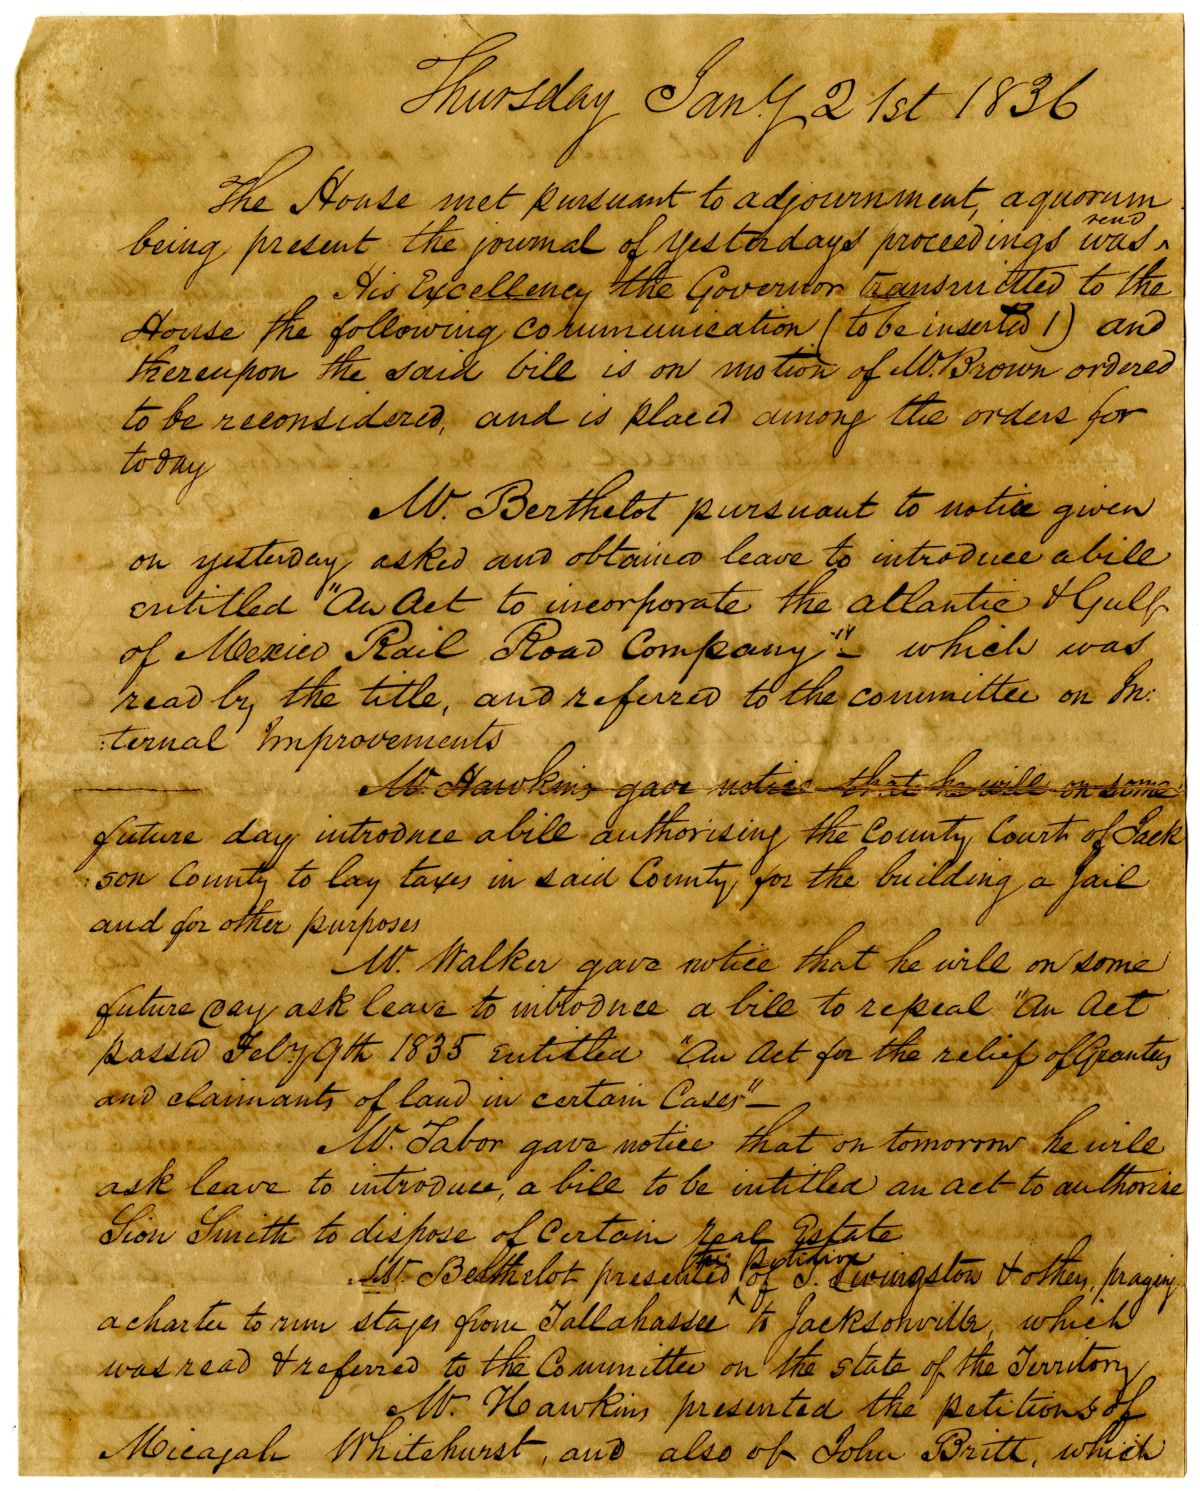 Thursday Jany 21st 1836
The House met pursuant to adjournment, a quorum
being present, the journal of yesterdays proceedings was read
His Excellency the Governor transmitted to the
House the following communication (to be inserted 1) and
thereupon the said bill is on motion of Mr. Brown ordered
to be reconsidered, and is placed among the orders for
today
Mr. Berthelot pursuant to notice given
on yesterday asked and obtained leave to introduce a bill
entitled "An Act to incorporate the atlantic & Gulf
of Mexico Rail Road Company" - which was
read by the title, and referred to the committee on In:
:ternal Improvements
Mr. Hawkins gave notice that he will on some
future day introduce a bill authorising the County Court of Jack
:son County to lay taxes in said County for the building a Jail
and for other purposes
Mr. Walker gave notice that he will on some
future day ask leave to introduce a bill to repeal "An Act
passed Feby 9th 1835 entitled "An Act for the relief of Grantees
and claimants of land in certain Cases" -
Mr. Tabor gave notice that on tomorrow he will
ask leave to introduce, a bill to be intitled an act to authorise
Sion Smith to dispose of Certain real Estate
Mr. Berthelot presented the petition of J. Livingston & others, praying
a charter to run stages from Tallahassee to Jacksonville, which
was read & referred to the Committee on the state of the Territory
Mr. Hawkins presented the petitions of
Micajah Whitehurst, and also of John Britt, which